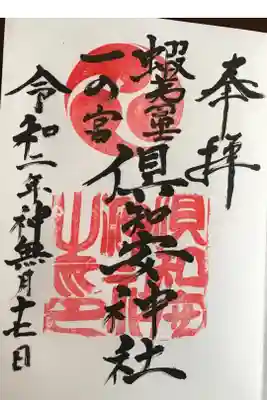 奉拝
蝦夷国
一の宮
倶知安神社
令和二年神無月十七日
倶知安
神社
之印